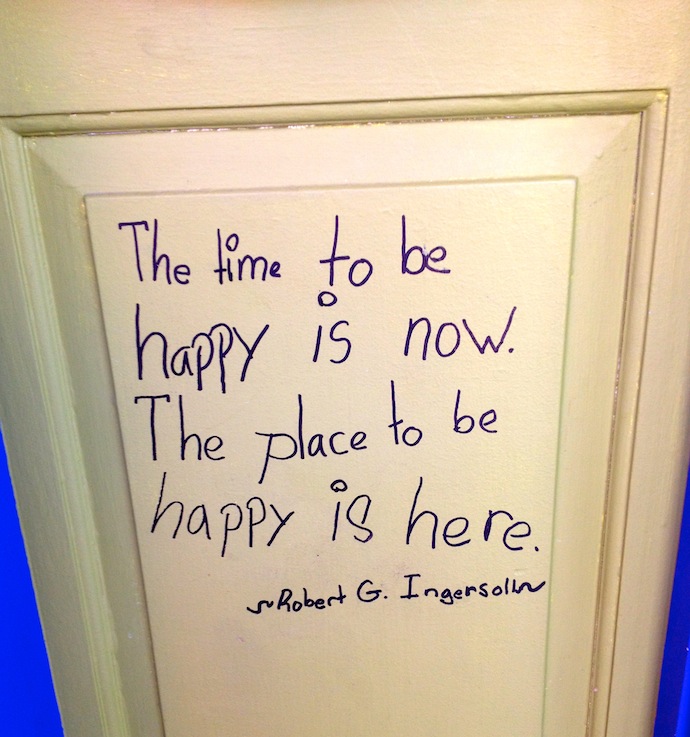 The time to be
happy is now.
The place to be
happy is here.
~Robert G. Ingersoll~